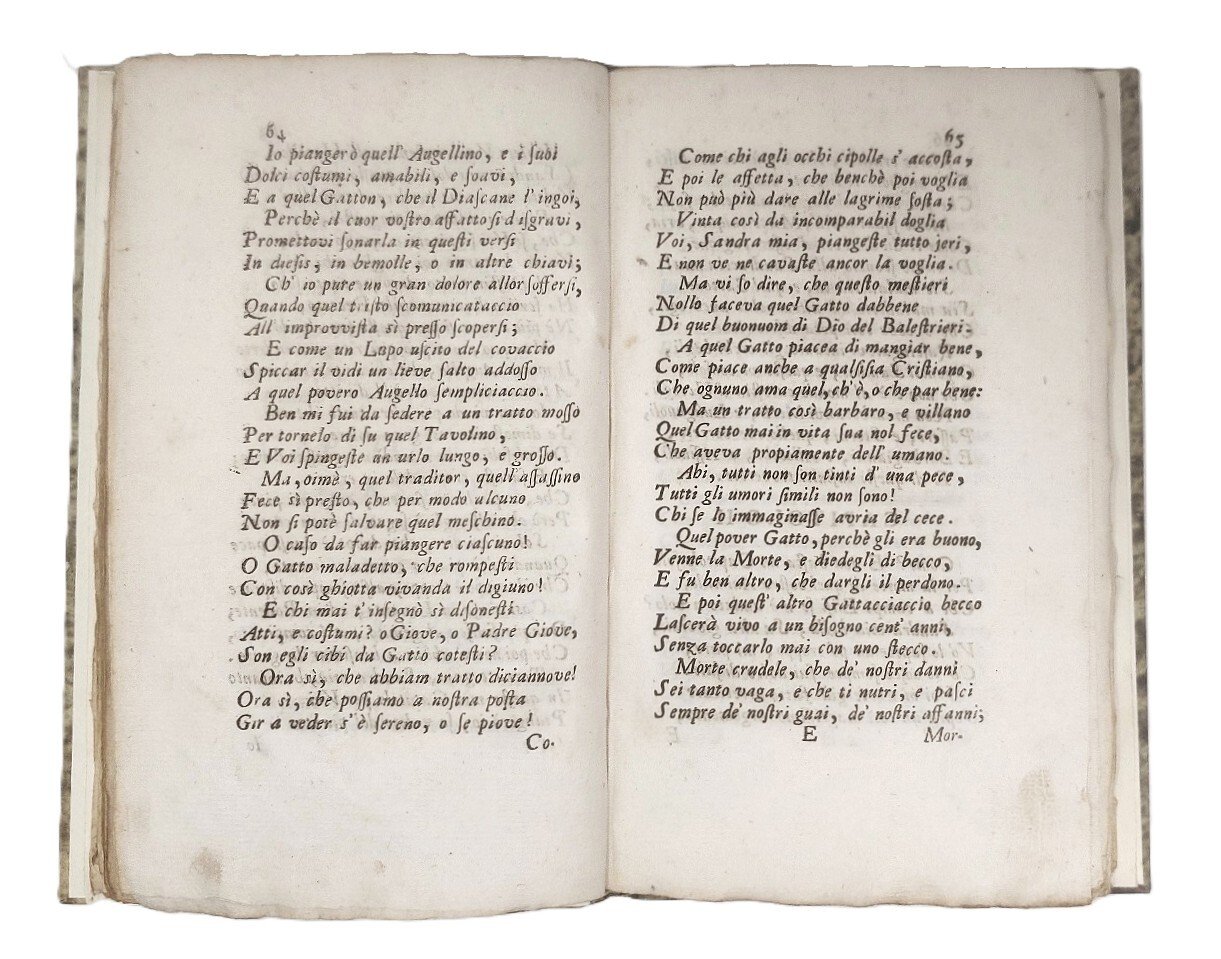 64
Io piangerò quell' Augellino, e i ſuoi
Dolci coſtumi, amabili, e ſoavi,
E a quel Gatton, che il Diascane l' ingoi,
Perchè il cuor voſtro affatto ſi d iſgravi,
Promettovi ſonarla in queſti verſi
In dieſis, in bemolle, o in altre chiavi;
Ch' io pure un gran dolore allor ſofferſi,
Quando quel triſto ſcomunicataccio
All' improvviſta sì preſſo ſcoperſi;
E come un Lupo uſcito del covaccio
Spiccar il vidi un lieve ſalto addoſſo
A quel povero Augello ſempliciaccio.
Ben mi fui da ſedere a un tratto moſſo
Per tornelo di su quel Tavolino,
E Voi ſpingeſte un urlo lungo, e groſſo.
Ma, oimè, quel traditor, quell' aſſaſſino
Fece sì preſto, che per modo alcuno
Non ſi potè ſalvare quel meſchino.
O caſo da far piangere ciascuno!
O Gatto maladetto, che rompeſti
Con così ghiotta vivanda il digiuno!
E chi mai t' inſegnò sì diſoneſti
Atti, e coſtumi? o Giove, o Padre Giove,
Son egli cibi da Gatto coteſti?
Ora sì, che abbiam tratto diciannove!
Ora sì, che poſſiamo a noſtra poſta
Gir a veder s' è ſereno, o ſe piove!
Co-
65
Come chi agli occhi cipolle s' accoſta,
E poi le affetta, che benchè poi voglia
Non può più dare alle lagrime ſoſta;
Vinta così da incomparabil doglia
Voi, Sandra mia, piangeſte tutto jeri,
E non ve ne cavaſte ancor la voglia.
Ma vi ſo dire, che queſto meſtieri
Nollo faceva quel Gatto dabbene
Di quel buonuom di Dio del Baleſtrieri.
A quel Gatto piacea di mangiar bene,
Come piace anche a qualſiſia Criſtiano,
Che ognuno ama quel, ch' è, o che par bene:
Ma un tratto così barbaro, e villano
Quel Gatto mai in vita sua nol fece,
Che aveva propiamente dell' umano.
Ahi, tutti non ſon tinti d' una pece,
Tutti gli umori ſimili non ſono!
Chi se lo immaginaſſe avria del cece.
Quel pover Gatto, perchè gli era buono,
Venne la Morte, e diedegli di becco,
E fu ben altro, che dargli il perdono.
E poi queſt' altro Gattacciaccio becco
Laſcerà vivo a un biſogno cent' anni,
Senza toccarlo mai con uno ſtecco.
Morte crudele, che de' noſtri danni
Sei tanto vaga, e che ti nutri, e paſci
Sempre de' noſtri guai, de' noſtri affanni;
E Mor-